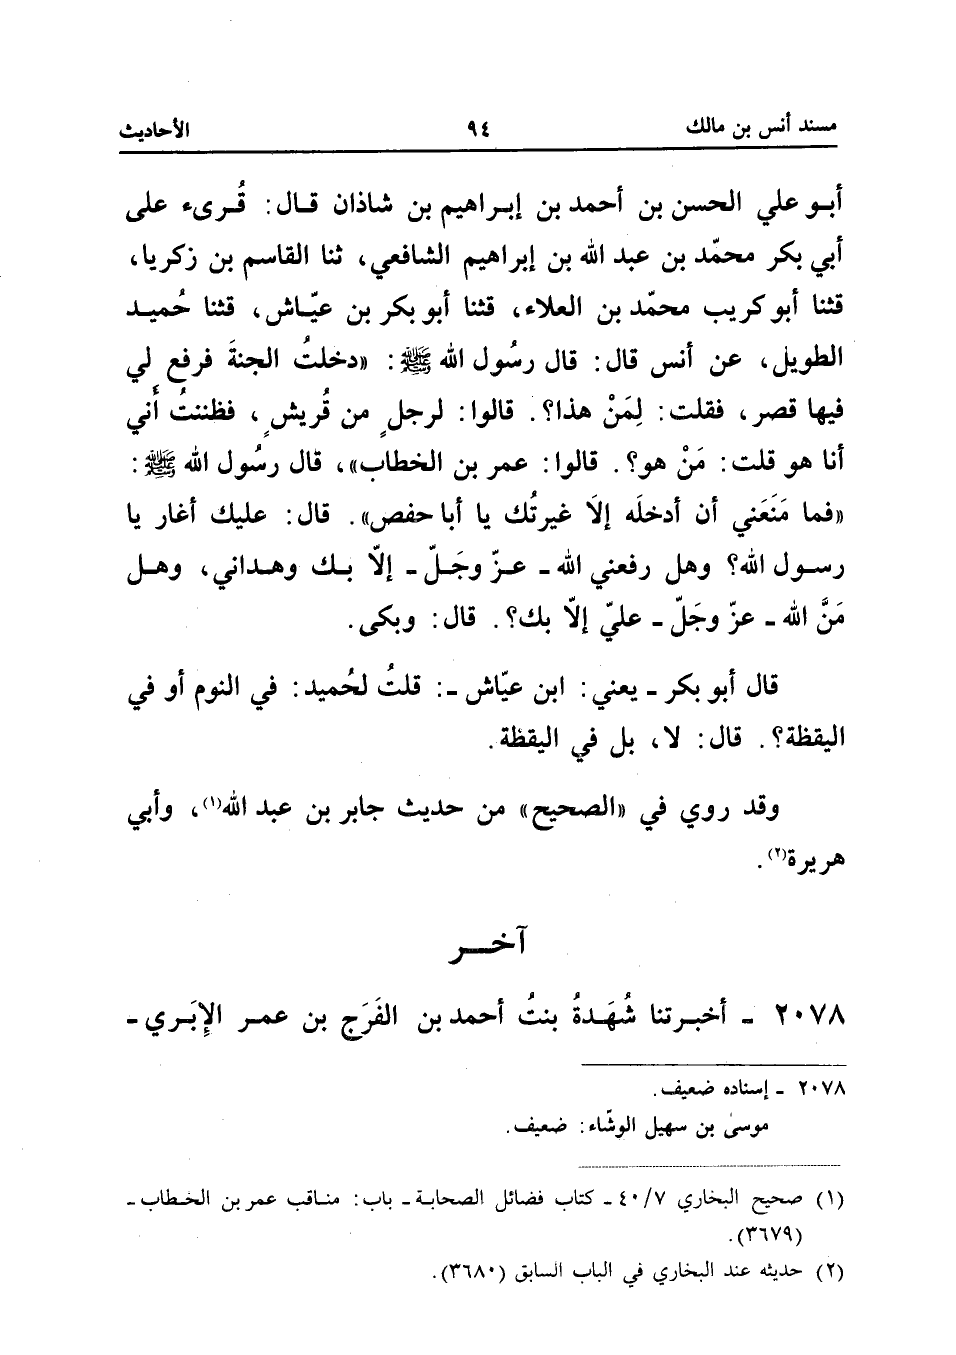 مسند أنس بن مالك ٩٤ الأحاديث
أبو علي الحسن بن أحمد بن إبراهيم بن شاذان قال: قُرىء على
أبي بكر محمّد بن عبد الله بن إبراهيم الشافعي، ثنا القاسم بن زكريا،
قثنا أبو كريب محمّد بن العلاء، قثنا أبو بكر بن عيّاش، قثنا حُميد
الطويل، عن أنس قال: قال رسُول الله ﷺ: «دخلتُ الجنةَ فرفع لي
فيها قصر، فقلت: لِمَنْ هذا؟. قالوا: لرجلٍ من قُريشٍ، فظننتُ أَني
أنا هو قلت: مَنْ هو؟. قالوا: عمر بن الخطاب»، قال رسُول الله ﷺ:
«فما مَنَعَني أن أدخلَه إلاَ غيرتُك يا أبا حفص». قال: عليك أغار يا
رسول الله؟ وهل رفعني الله ـ عزّ وجَلّ ـ إلاّ بك وهداني، وهل
مَنَّ الله ـ عزّ وجَلّ ـ عليّ إلاّ بك؟. قال: وبكى.
قال أبو بكر ـ يعني: ابن عيّاش ـ: قلتُ لحُميد: في النوم أو في
اليقظة؟. قال: لا، بل في اليقظة.
وقد روي في «الصحيح» من حديث جابر بن عبد الله(١)، وأبي
هريرة(٢).
آخر
٢٠٧٨ ـ أخبرتنا شُهَدةُ بنتُ أحمد بن الفَرَج بن عمر الإبَري ـ
٢٠٧٨ ـ إسناده ضعيف.
موسىٰ بن سهيل الوشّاء: ضعيف.
(١) صحيح البخاري ٤٠/٧ ـ كتاب فضائل الصحابة ـ باب: مناقب عمر بن الخطاب ـ
(٣٦٧٩).
(٢) حديثه عند البخاري في الباب السابق (٣٦٨٠).